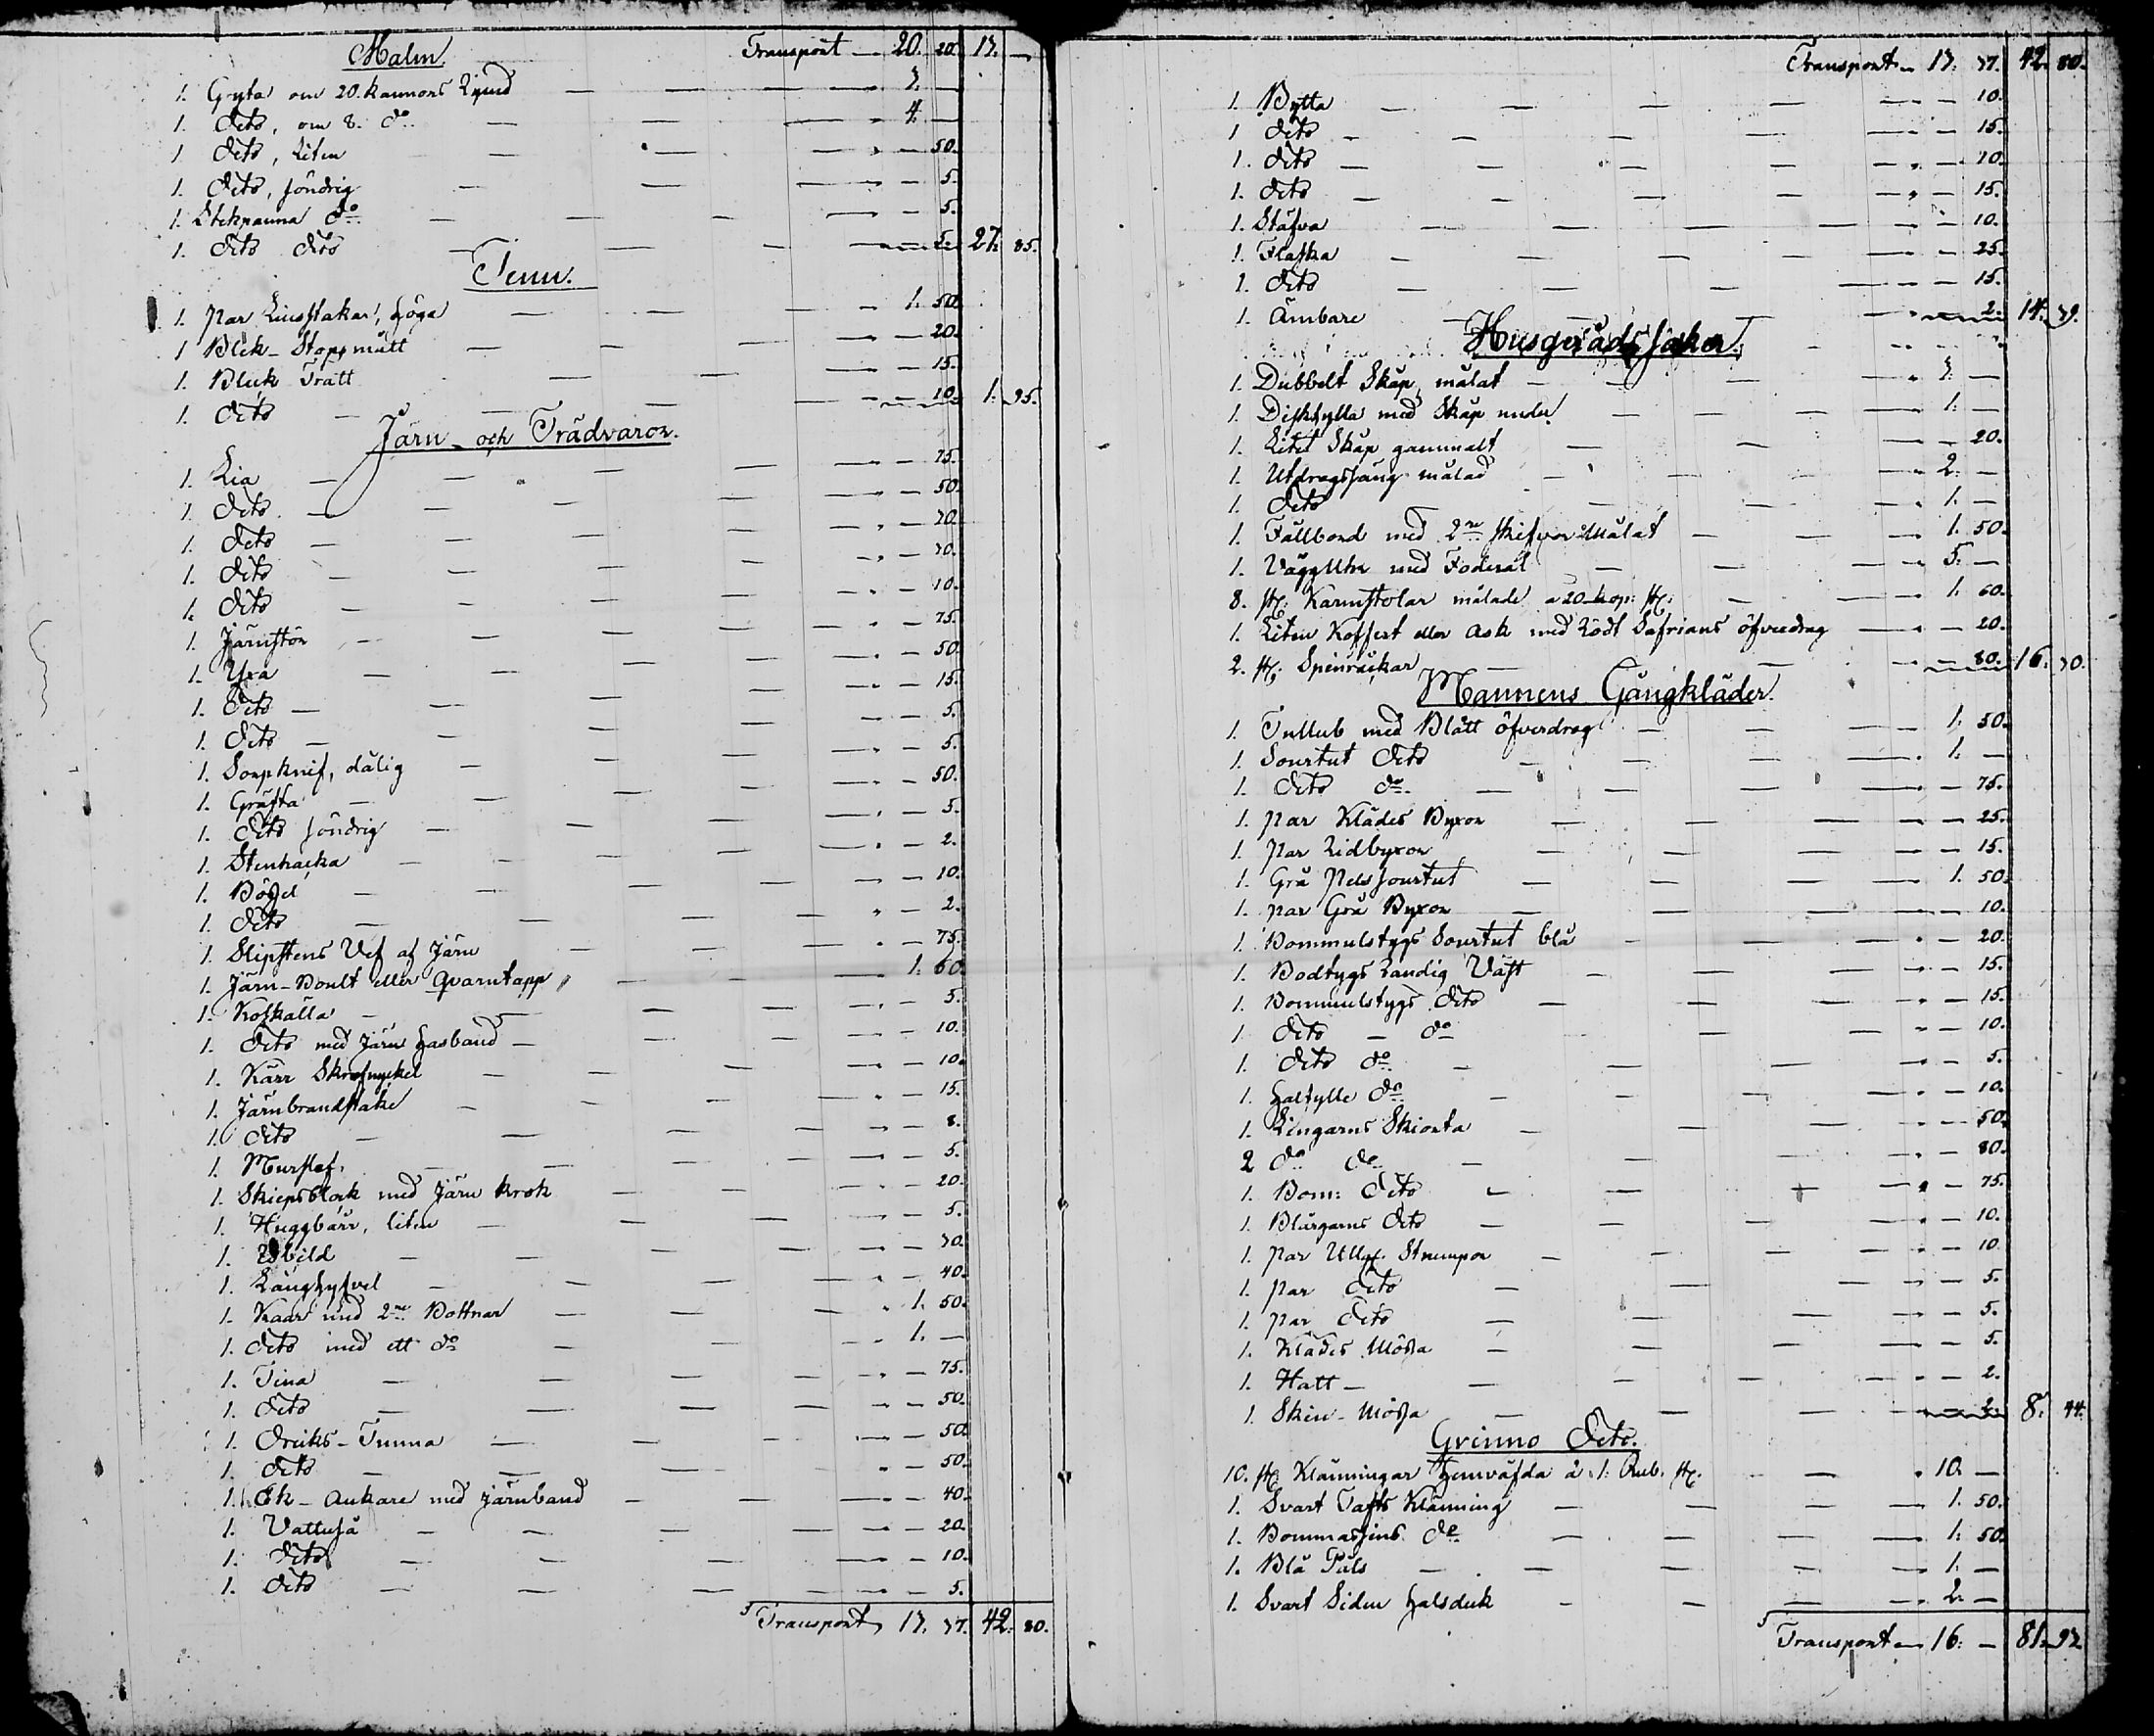 Malm. Transport 20. 20. 13. —
1. Gryta om 20. kannors Rymd 3. —
1. Dito, om 8. do 4. —
1. Dito, Liten — 50.
1. Dito, söndrig — 5.
1. Stekpanna do — 5.
1. Dito Dito — 5. 27. 85.
Tenn.
1. par Liusstakar, höga 1. 50.
1 Blek-Stopmått — 20.
1. Bleck Tratt — 15.
1. Dito — 10. 1. 95.
Järn- och Trädvaror.
1. Lia — 75.
1. Dito — 50.
1. Dito — 30.
1. Dito — 30.
1. Dito — 10.
1. Järnstör — 75.
1. Yxa — 50.
1. Dito — 15.
1. Dito — 5.
1. knif, dålig — 5.
1. Gräfta — 50.
1. Dito söndrig — 5.
1. Stenhacka — 2.
1. Bögel — 10.
1. Dito — 2.
1. Slipstens Vef af Järn — 75.
1. Järn-Boult eller Qvarntapp 1. 60.
1. Koskälla — 5.
1. Dito med Järn hasband — 10.
1. Kärr Skrufnyckel — 10.
1. Järnbrandstake — 15.
1. Dito — 8.
1. Murslef — 5.
1. Skiepsblock med Järn krok — 20.
1. Huggbårr, liten — 5.
1. — 30.
1. Långhyfvel — 40.
1. Kaar med 2ne Bottnar 1. 50.
1. Dito med ett do 1. —
1. Tina — 75.
1. Dito — 50.
1. Dricks-Tunna — 50.
1. Dito — 50.
1. Ek-Ankare med järnband — 40.
1. Vattuså — 20.
1. Dito — 10.
1. Dito — 5.
Transport 13. 37. 42. 80.
Transport 13. 37. 42. 80.
1. Bytta — 10.
1 Dito — 15.
1. Dito — 10.
1. Dito — 15.
1. Stäfva — 10.
1. Flaska — 25.
1. Dito — 15.
1. Ämbare — 2. 14. 39.
Husgerådssaker.
1. Dubbelt Skåp, målat 3. —
1. Diskhylla med Skåp under 1. —
1. Litet Skåp gammalt — 20.
1. Utdragssäng målad 2. —
1. Dito 1. —
1. Fällbord med 2ne skifvor Målat 1. 50.
1. VäggUhr med Foderal 5. —
8. st. Karmstolar målade a 20 kop: st. 1. 60.
1. Liten Koffert eller Ask med Rödt Safrians öfverdrag — 20.
2. st. Spinråckar — 80. 16. 30.
Mannens Gångkläder.
1. Tullub med Blått öfverdrag 1. 50.
1. Sourtut Dito 1. —
1. Dito do — 75.
1. par Klädes Byxor — 25.
1. par Ridbyxor — 15.
1. Grå Pelssourtut 1. 50.
1. par Grå Byxor — 10.
1. Bommulstygs Sourtut blå — 20.
1. Bodtygs Randig Väst — 15.
1. Bommulstygs Dito — 15.
1. Dito — do — 10.
1. Dito do — 5.
1. Halfylle do — 10.
1. Lingarns Skiorta — 50.
2 do do — 80.
1. Bom: Dito — 75.
1. Blårgarns Dito — 10.
1. par Ullg. Strumpor — 10.
1. par Dito — 5.
1. par Dito — 5.
1. Klädes Mössa — 5.
1. Hatt — 2.
1. Skin-Mössa — 2. 8. 44.
Qvinno Dito.
10. st. Klänningar Hemväfda à 1. Rub. st. 10. —
1. Svart Tafts Klänning 1. 50.
1. Bommassins do 1. 50.
1. Blå Päls 1. —
1. Svart Siden halsduk 2. —
Transport 16. — 81. 93.